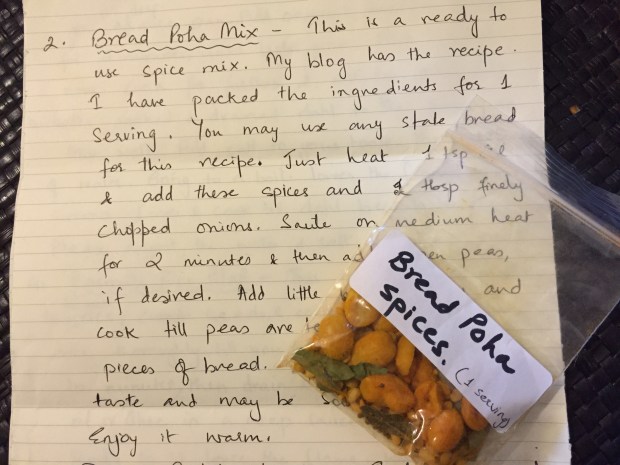 2. Bread Poha Mix - This is a ready to
use spice mix. My blog has the recipe.
I have packed the ingredients for 1
Serving. You may use any stale bread
for this recipe. Just heat 1 tsp
& add these spices and 2 tbsp finely
chopped onions. Saute on medium heat
for 2 minutes & then peas,
if desired. Add little and
cook till peas are
pieces of bread.
taste and may be
Enjoy it warm.
Bread Poha
spices.
(1 serving)